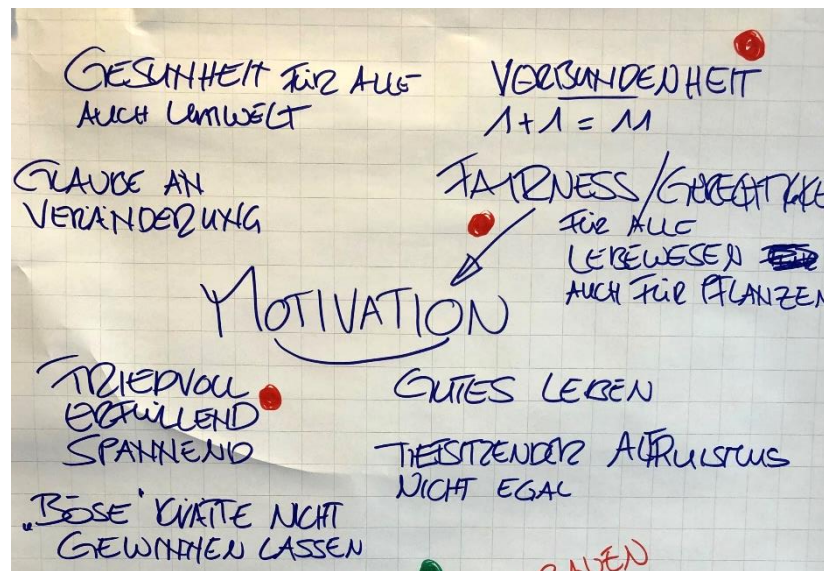 GESUNHEIT FÜR ALLE
AUCH UMWELT
VERBUNDENHEIT
1+1 = 11
GLAUBE AN
VERÄNDERUNG
FAIRNESS/GERECHTIGKE
FÜR ALLE
LEBEWESEN
AUCH FÜR PFLANZEN
MOTIVATION
TRIEBVOLL
ERFÜLLEND
SPANNEND
GUTES LEBEN
TIEFSITZENDER ALTRUISMUS
NICHT EGAL
„BÖSE" KRÄFTE NICHT
GEWINNEN LASSEN